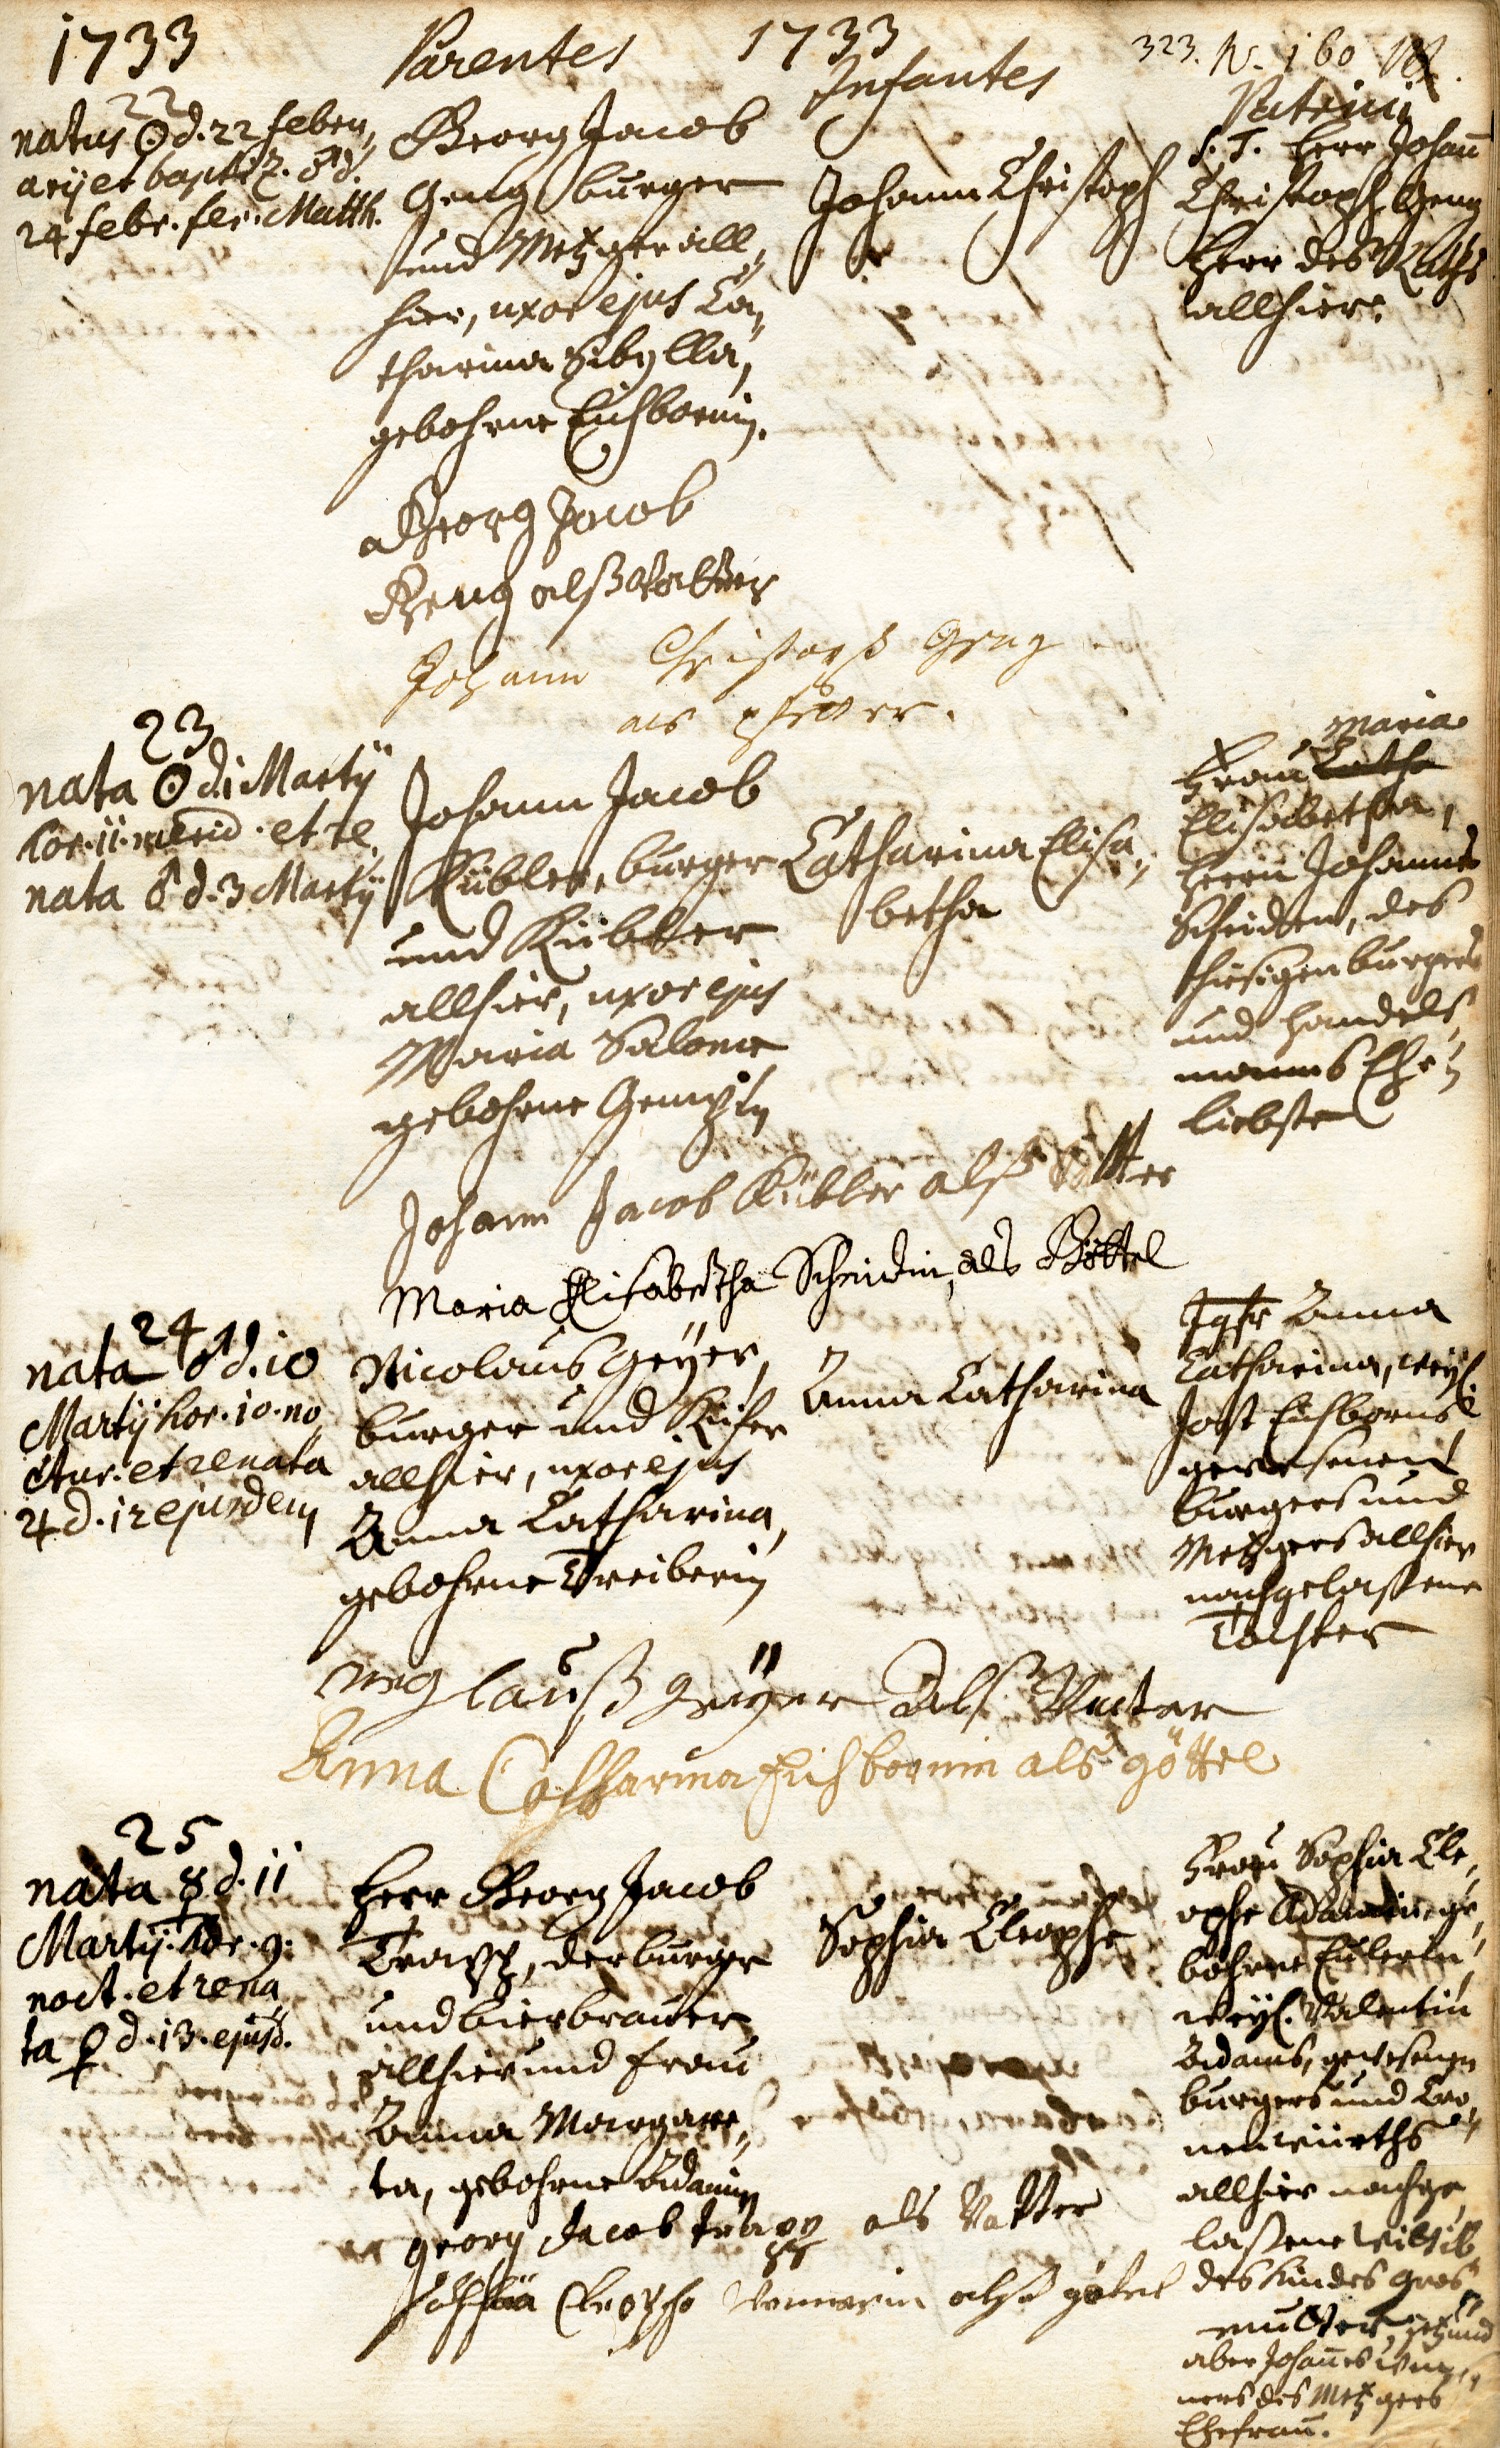 1733
Parentes
1733
Infantes
323. N. 160
Patrini
22
natus ☉ d. 22 febru,
arij et baptiz. ♂ d.
24 febr. fer. Matth.
Georg Jacob
Geng burger
und Metzger all,
hier, uxor ejus Ca,
tharina Sibylla,
gebohrne Eichbornin.
Johann Christoph
S. T. Herr Johañ
Christoph Geng
Herr des Raths
allhier.
Georg Jacob
Geng alß Vatter
Johann Christoph Geng
als pfetter.
23
nata ☉ d. 1 Martij
hor. 11. merid. et re,
nata ♂ d. 3 Martij
Johann Jacob
Kübler, burger
und Kübler
allhier, uxor ejus
Maria Salome
gebohrne
Catharina Elisa,,
betha
Maria
Frau Catha
Elisabetha,
Herrn Johannes
Scheiden, des
hiesigen burgers
und handels,
manns Ehe,
liebste
Johann Jacob Kübler alß Vatter
Maria Elisabetha Scheidin, als Göttel
24
nata ♂ d. 10
Martij hor. 10. no,
ctur. et renata
♃ d. 12 ejusdem
Nicolaus Geÿer,
burger und Küfer
allhier, uxor ejus
Anna Catharina,
gebohrne Treiberin
Anna Catharina
Jgfr Anna
Catharina, weyl.
Jost Eichborns
gewesenen
burgers und
Metzgers allhier
nachgelaßene
Tochter
Niglauß Geÿer Als Vatter
Anna Catharina Eichbornin als göttel
25
nata ☿ d. 11
Martij. hor. 9.
noct. et rena
ta ♀ d. 13. ejusd.
Herr Georg Jacob
Trapp, der burger
und bierbrauer
allhier und Frau
Anna Margare,,
ta, gebohrne Adamin
Sophia Cleophe
Frau Sophia Cle,
ophe Adamin, ge,
bohrne Eulerin,
weyl. Valentin
Adams, gewesenen
burgers und Cro,
nenwürths
allhier nachge,
laßene Wittib
des Kindes Gros,
mutter, jetzund
aber Johannes
ners des Metzgers
Ehefrau.
georg Jacob trapp als Vatter
Sophia Cleophe als götel